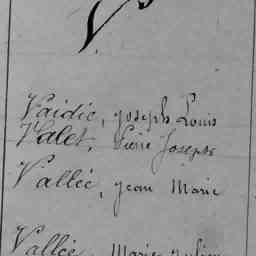 V
Vaidie, Joseph Louis
Valet, Pierre Joseph
Vallée, Jean Marie
Vallée, Marie Julien